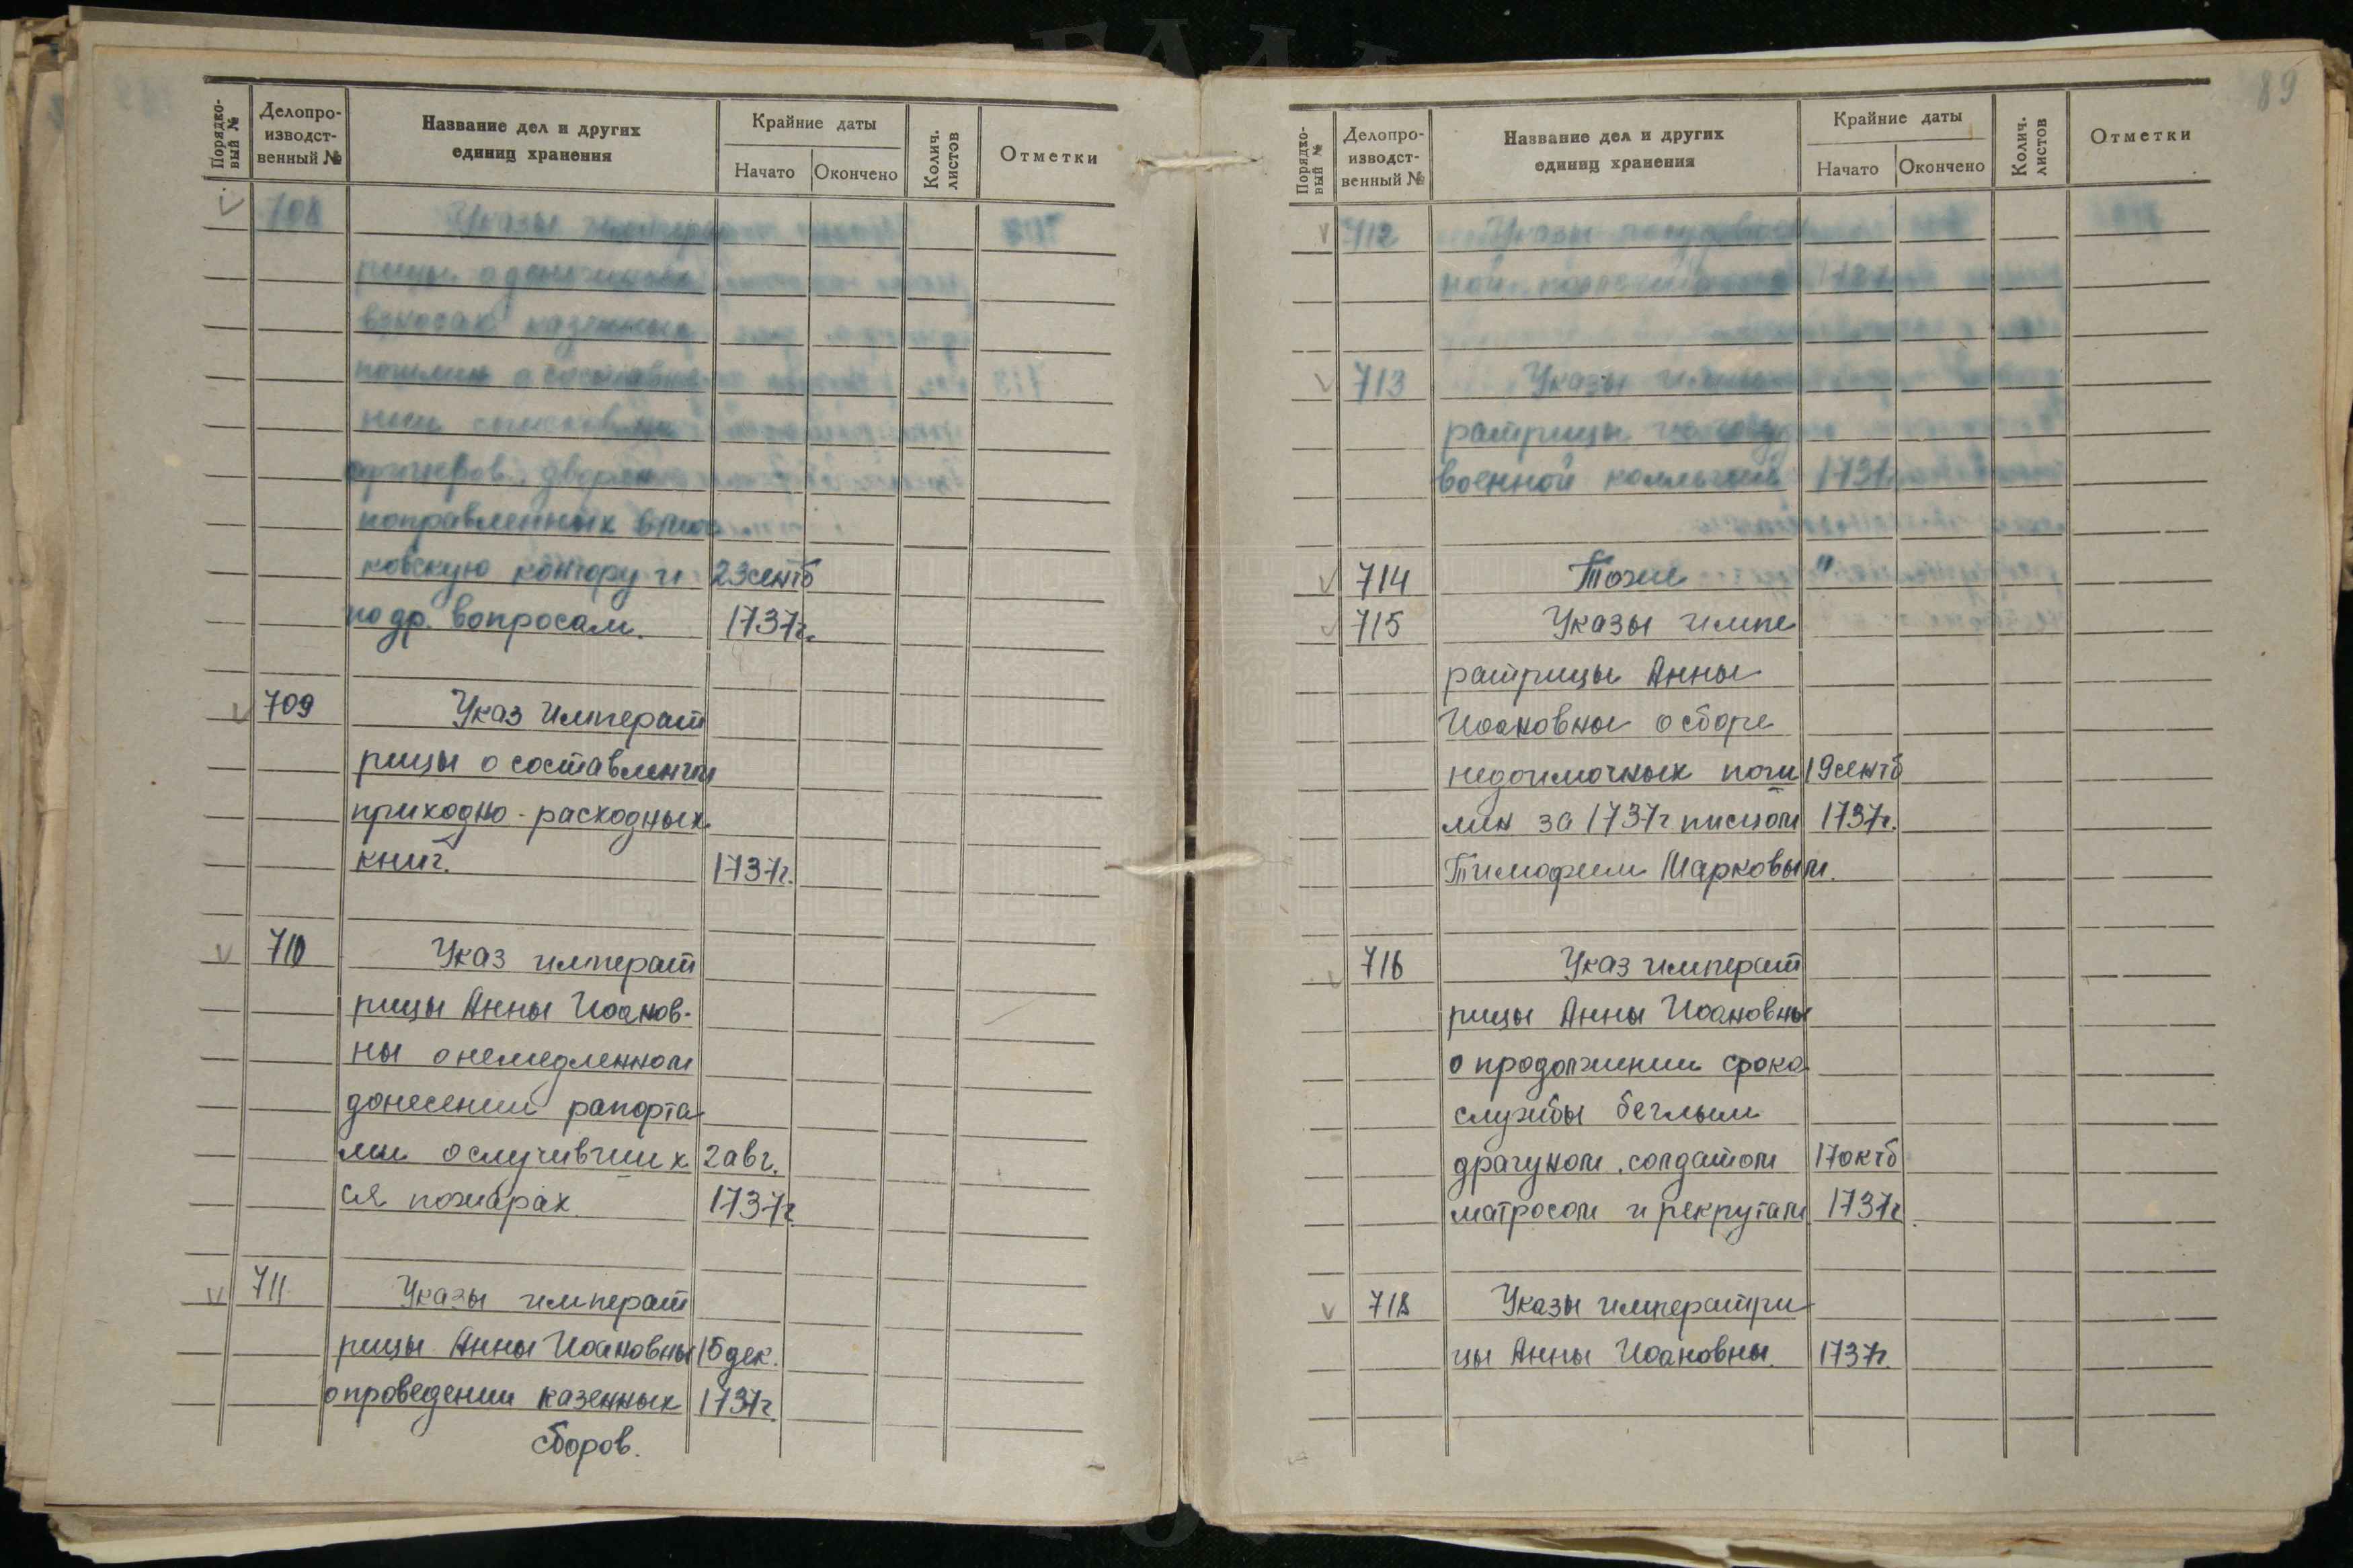 Порядко-
вый №
Делопро-
изводст-
венный №
Название дел и других
единиц хранения
Крайние даты
Начато
Окончено
Колич.
листов
Отметки
708 Указы императ
рицы о денежных
взносах казенных
пошлин о составле
нии списков
офицеров, дворян
направленных в Мос
ковскую контору и 23 сентб
по др. вопросам. 1737г.
709 Указ Императ
рицы о составлении
приходно-расходных
книг. 1737г.
710 Указ императ
рицы Анны Иоанов-
ны о немедленном
донесении рапорта
ми о случивших 2 авг.
ся пожарах 1737г.
711 Указы императ
рицы Анны Иоановны 15 дек.
о проведении казенных 1737г.
сборов.
89
Порядко-
вый №
Делопро-
изводст-
венный №
Название дел и других
единиц хранения
Крайние даты
Начато
Окончено
Колич.
листов
Отметки
712 Указы государствен
ной коллегии 1737
713 Указы импе
ратрицы из государ
военной коллегии 1737г.
714 Тоже "
715 Указы импе
ратрицы Анны
Иоановны о сборе
недоимочных пош 19 сентб
лин за 1737г писцом 1737г.
Тимофеем Марковым.
716 Указ императ
рицы Анны Иоановны
о продолжении срока
службы беглым
драгуном, солдатом 17 октб
матросом и рекрутам 1737г.
718 Указы императри
цы Анны Иоановны. 1737г.